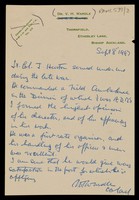 DR. C. H. WANDLE
THORNFIELD,
ETHERLEY LANE,
BISHOP AUCKLAND
Sept 8 1947
Lt. Col. J. Huston served under me
during the late war.
He commanded a Field Ambulance
in the Division of which I was A.D.M.S.
I formed the highest opinion of
his character, and of his efficiency
in his work.
He was a first rate organiser, and
his handling of his officers & men
was excellent.
I am sure that he would give every
satisfaction in the post for which he is
applying.
Colonel